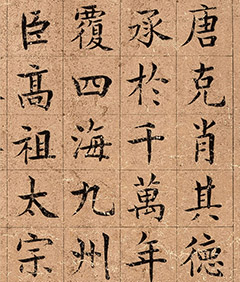 唐克肖其德
承於千萬年
覆四海九州
臣高祖太宗